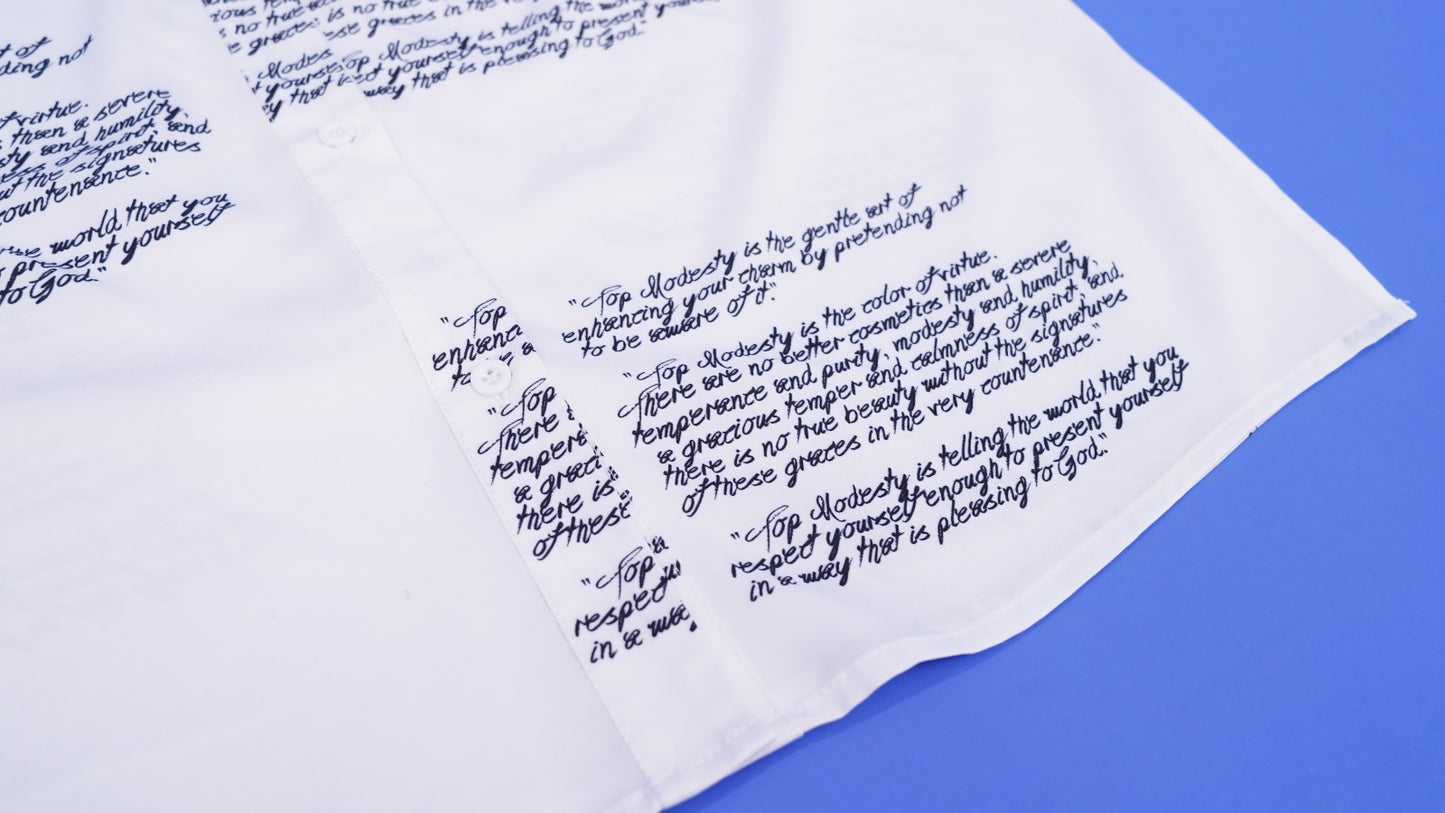 is no true
these graces in the very
"Top Modesty is telling the world
respect yourself enough to present yourself
way that is pleasing to God."
t of
ding not
of virtue.
s than a severe
sty and humility,
ness of spirit, and
ut the signatures
countenance."
the world that you
present yourself
to God."
"Top
enhanc
to be a
"Top
There
tempera
a graci
there is
of these
"Top
respect
in a wa
"Top Modesty is the gentle art of
enhancing your charm by pretending not
to be aware of it."
"Top Modesty is the color of virtue.
There are no better cosmetics than a severe
temperance and purity, modesty and humility,
a gracious temper and calmness of spirit, and
there is no true beauty without the signatures
of these graces in the very countenance."
"Top Modesty is telling the world that you
respect yourself enough to present yourself
in a way that is pleasing to God."